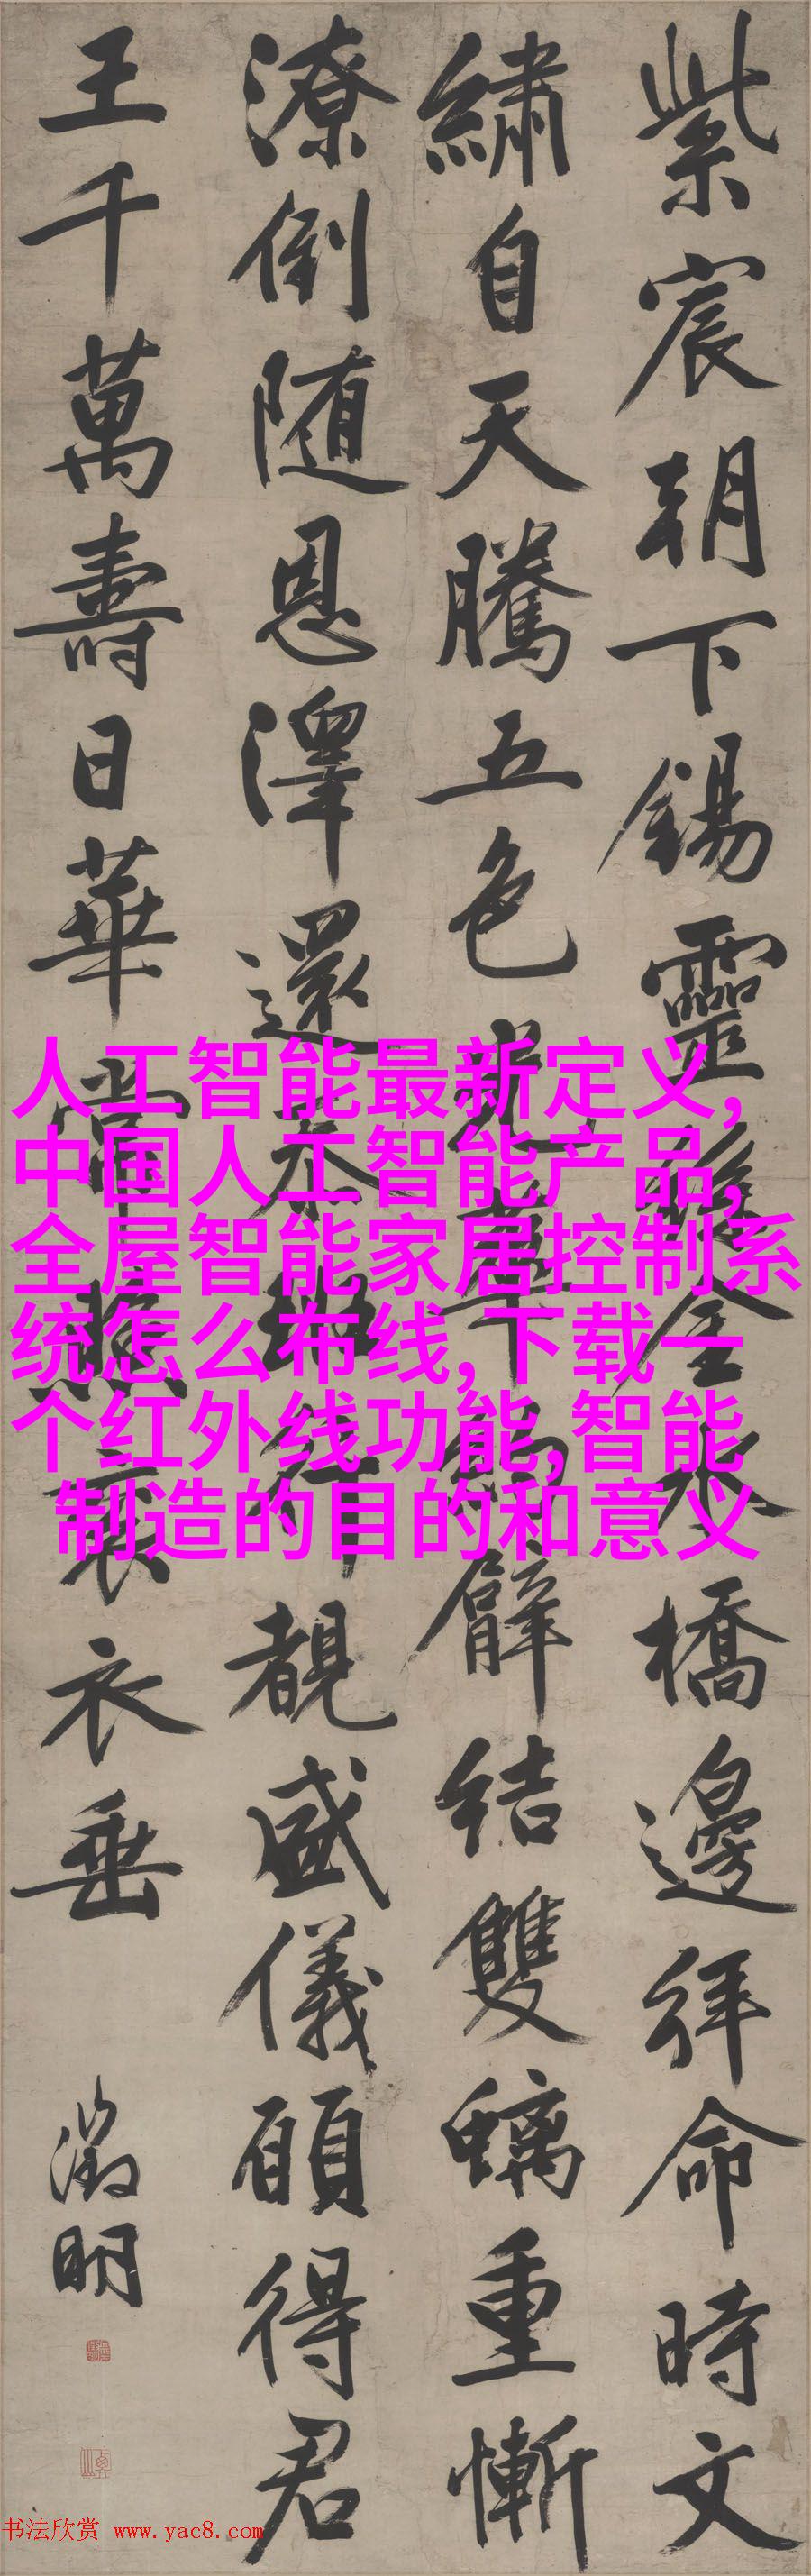 紫宸朝下錫靈絲金水橋邊拜命時文
繡自天騰五色光華約臂結雙螭重慚
潦倒隨恩澤還忝班行覩盛儀願得君
王千萬壽日華常照袞衣垂
徵明
人工智能最新定义,
中国人工智能产品,
全屋智能家居控制系
统怎么布线,下载一
个红外线功能,智能
制造的目的和意义
书法欣赏 www.yac8.com